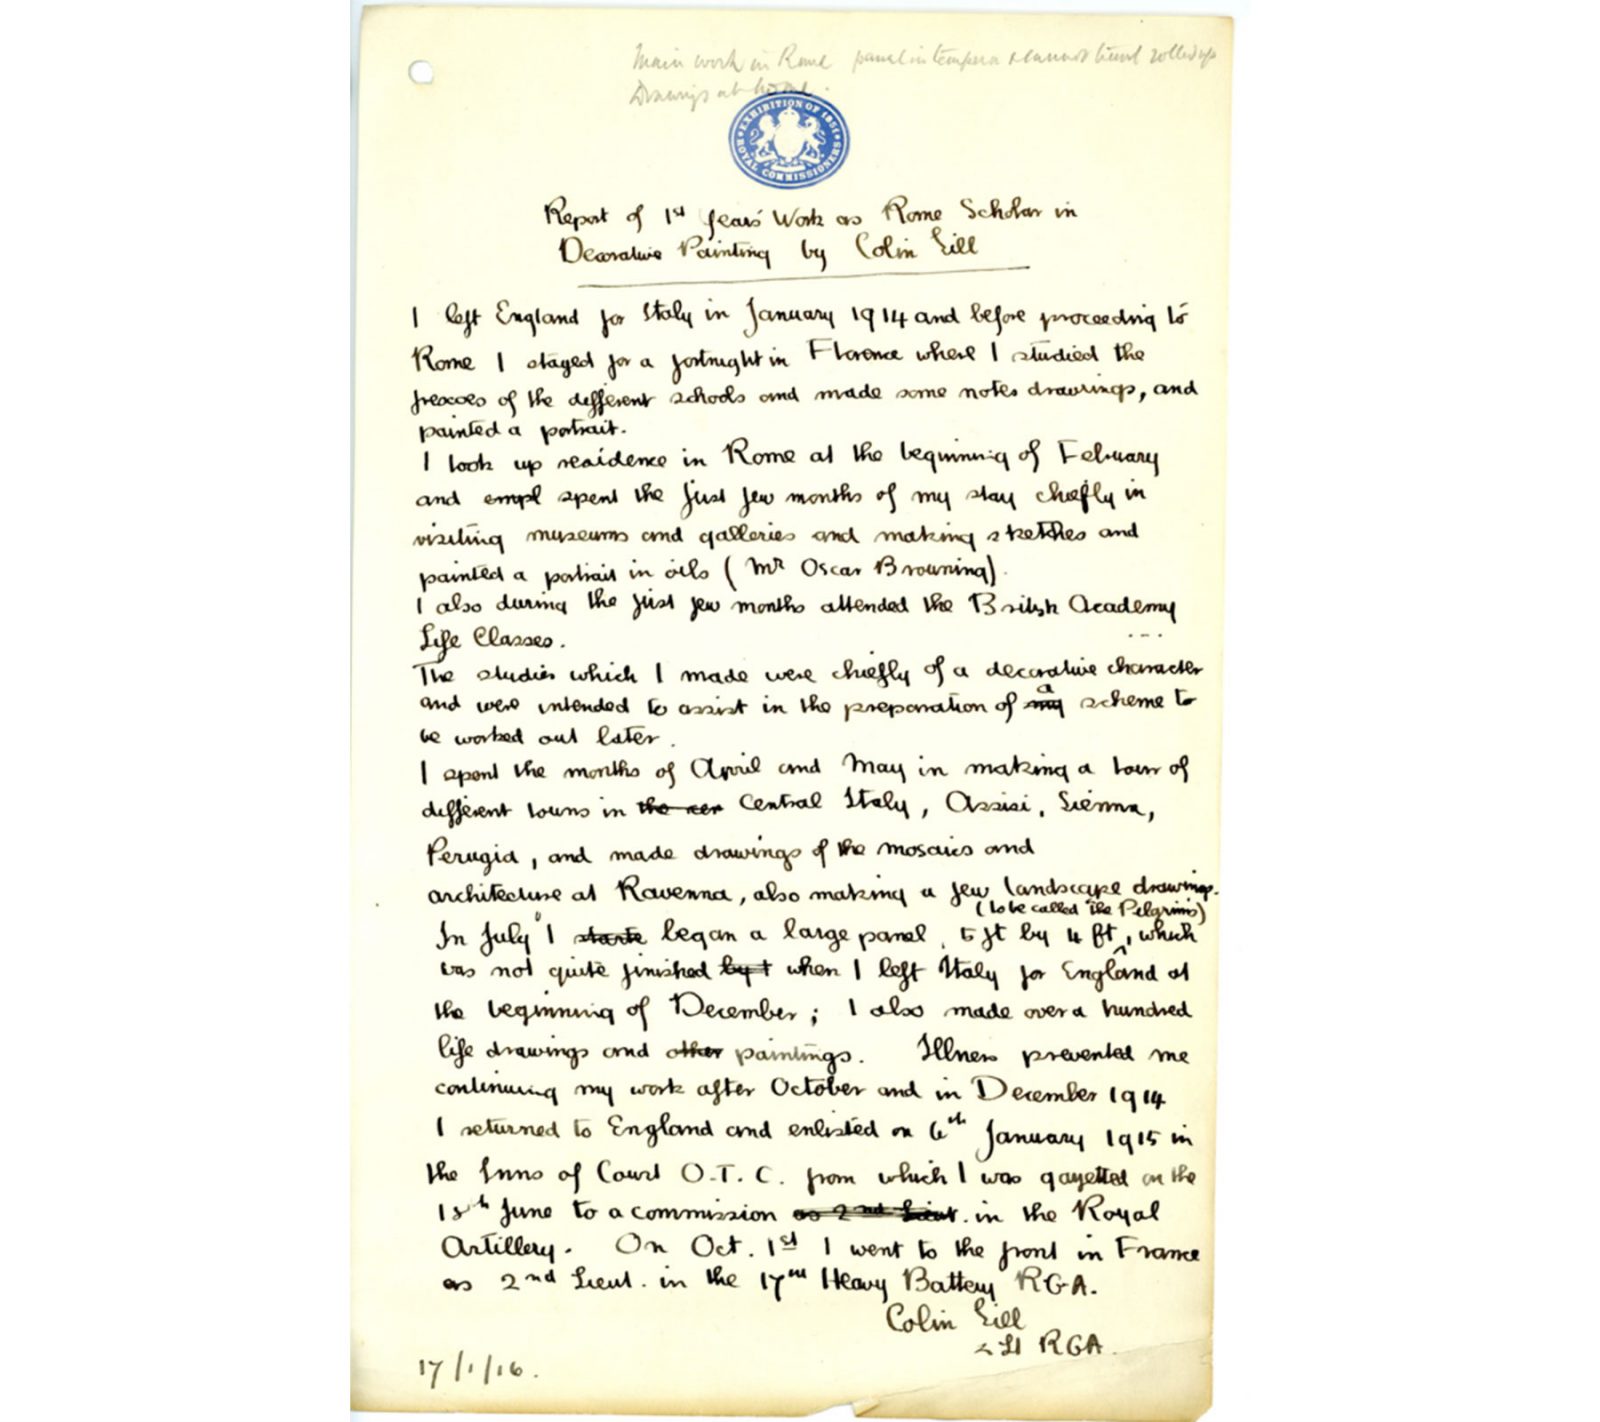 Main work in Rome panel in tempera & cannot be rolled up
Drawings at home.
EXHIBITION OF 1851
ROYAL COMMISSIONERS
Report of 1st Years' Work as Rome Scholar in
Decorative Painting by Colin Gill
I left England for Italy in January 1914 and before proceeding to
Rome I stayed for a fortnight in Florence where I studied the
frescoes of the different schools and made some notes drawings, and
painted a portrait.
I took up residence in Rome at the beginning of February
and empl spent the first few months of my stay chiefly in
visiting museums and galleries and making sketches and
painted a portrait in oils (Mr Oscar Browning).
I also during the first few months attended the British Academy
Life Classes.
The studies which I made were chiefly of a decorative character
and were intended to assist in the preparation of my a scheme to
be worked out later.
I spent the months of April and May in making a tour of
different towns in the cen Central Italy, Assisi, Sienna,
Perugia, and made drawings of the mosaics and
architecture at Ravenna, also making a few landscape drawings.
(to be called The Pilgrims)
In July I starte began a large panel, 5 ft by 4 ft, which
was not quite finished when I left Italy for England at
the beginning of December; I also made over a hundred
life drawings and other paintings. Illness prevented me
continuing my work after October and in December 1914
I returned to England and enlisted on 6th January 1915 in
the Inns of Court O.T.C. from which I was gazetted on the
18th June to a commission as 2nd Lieut. in the Royal
Artillery. On Oct. 1st I went to the front in France
as 2nd Lieut. in the 17th Heavy Battery RGA.
Colin Gill
2 Lt RGA.
17/1/16.